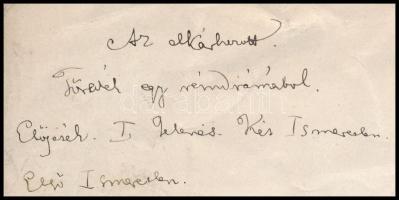 Az elkárhozott.
Töredék egy rémdrámából.
Előjáték. I. Jelenés. Két Ismeretlen.
Első Ismeretlen.